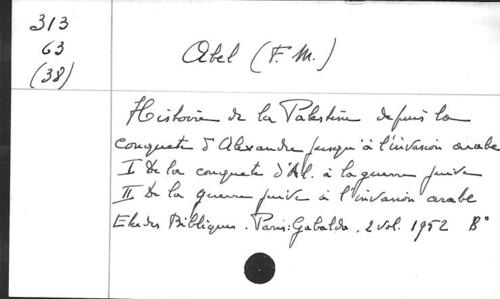 313
63
(38)
Abel (F. M.)
Histoire de la Palestine depuis la
conquete d'Alexandre jusqu'à l'invasion arabe
I De la conquete d'Al. à la guerre juive
II De la guerre juive à l'invasion arabe
Etudes Bibliques. Paris: Gabalda, 2 vol. 1952 B°